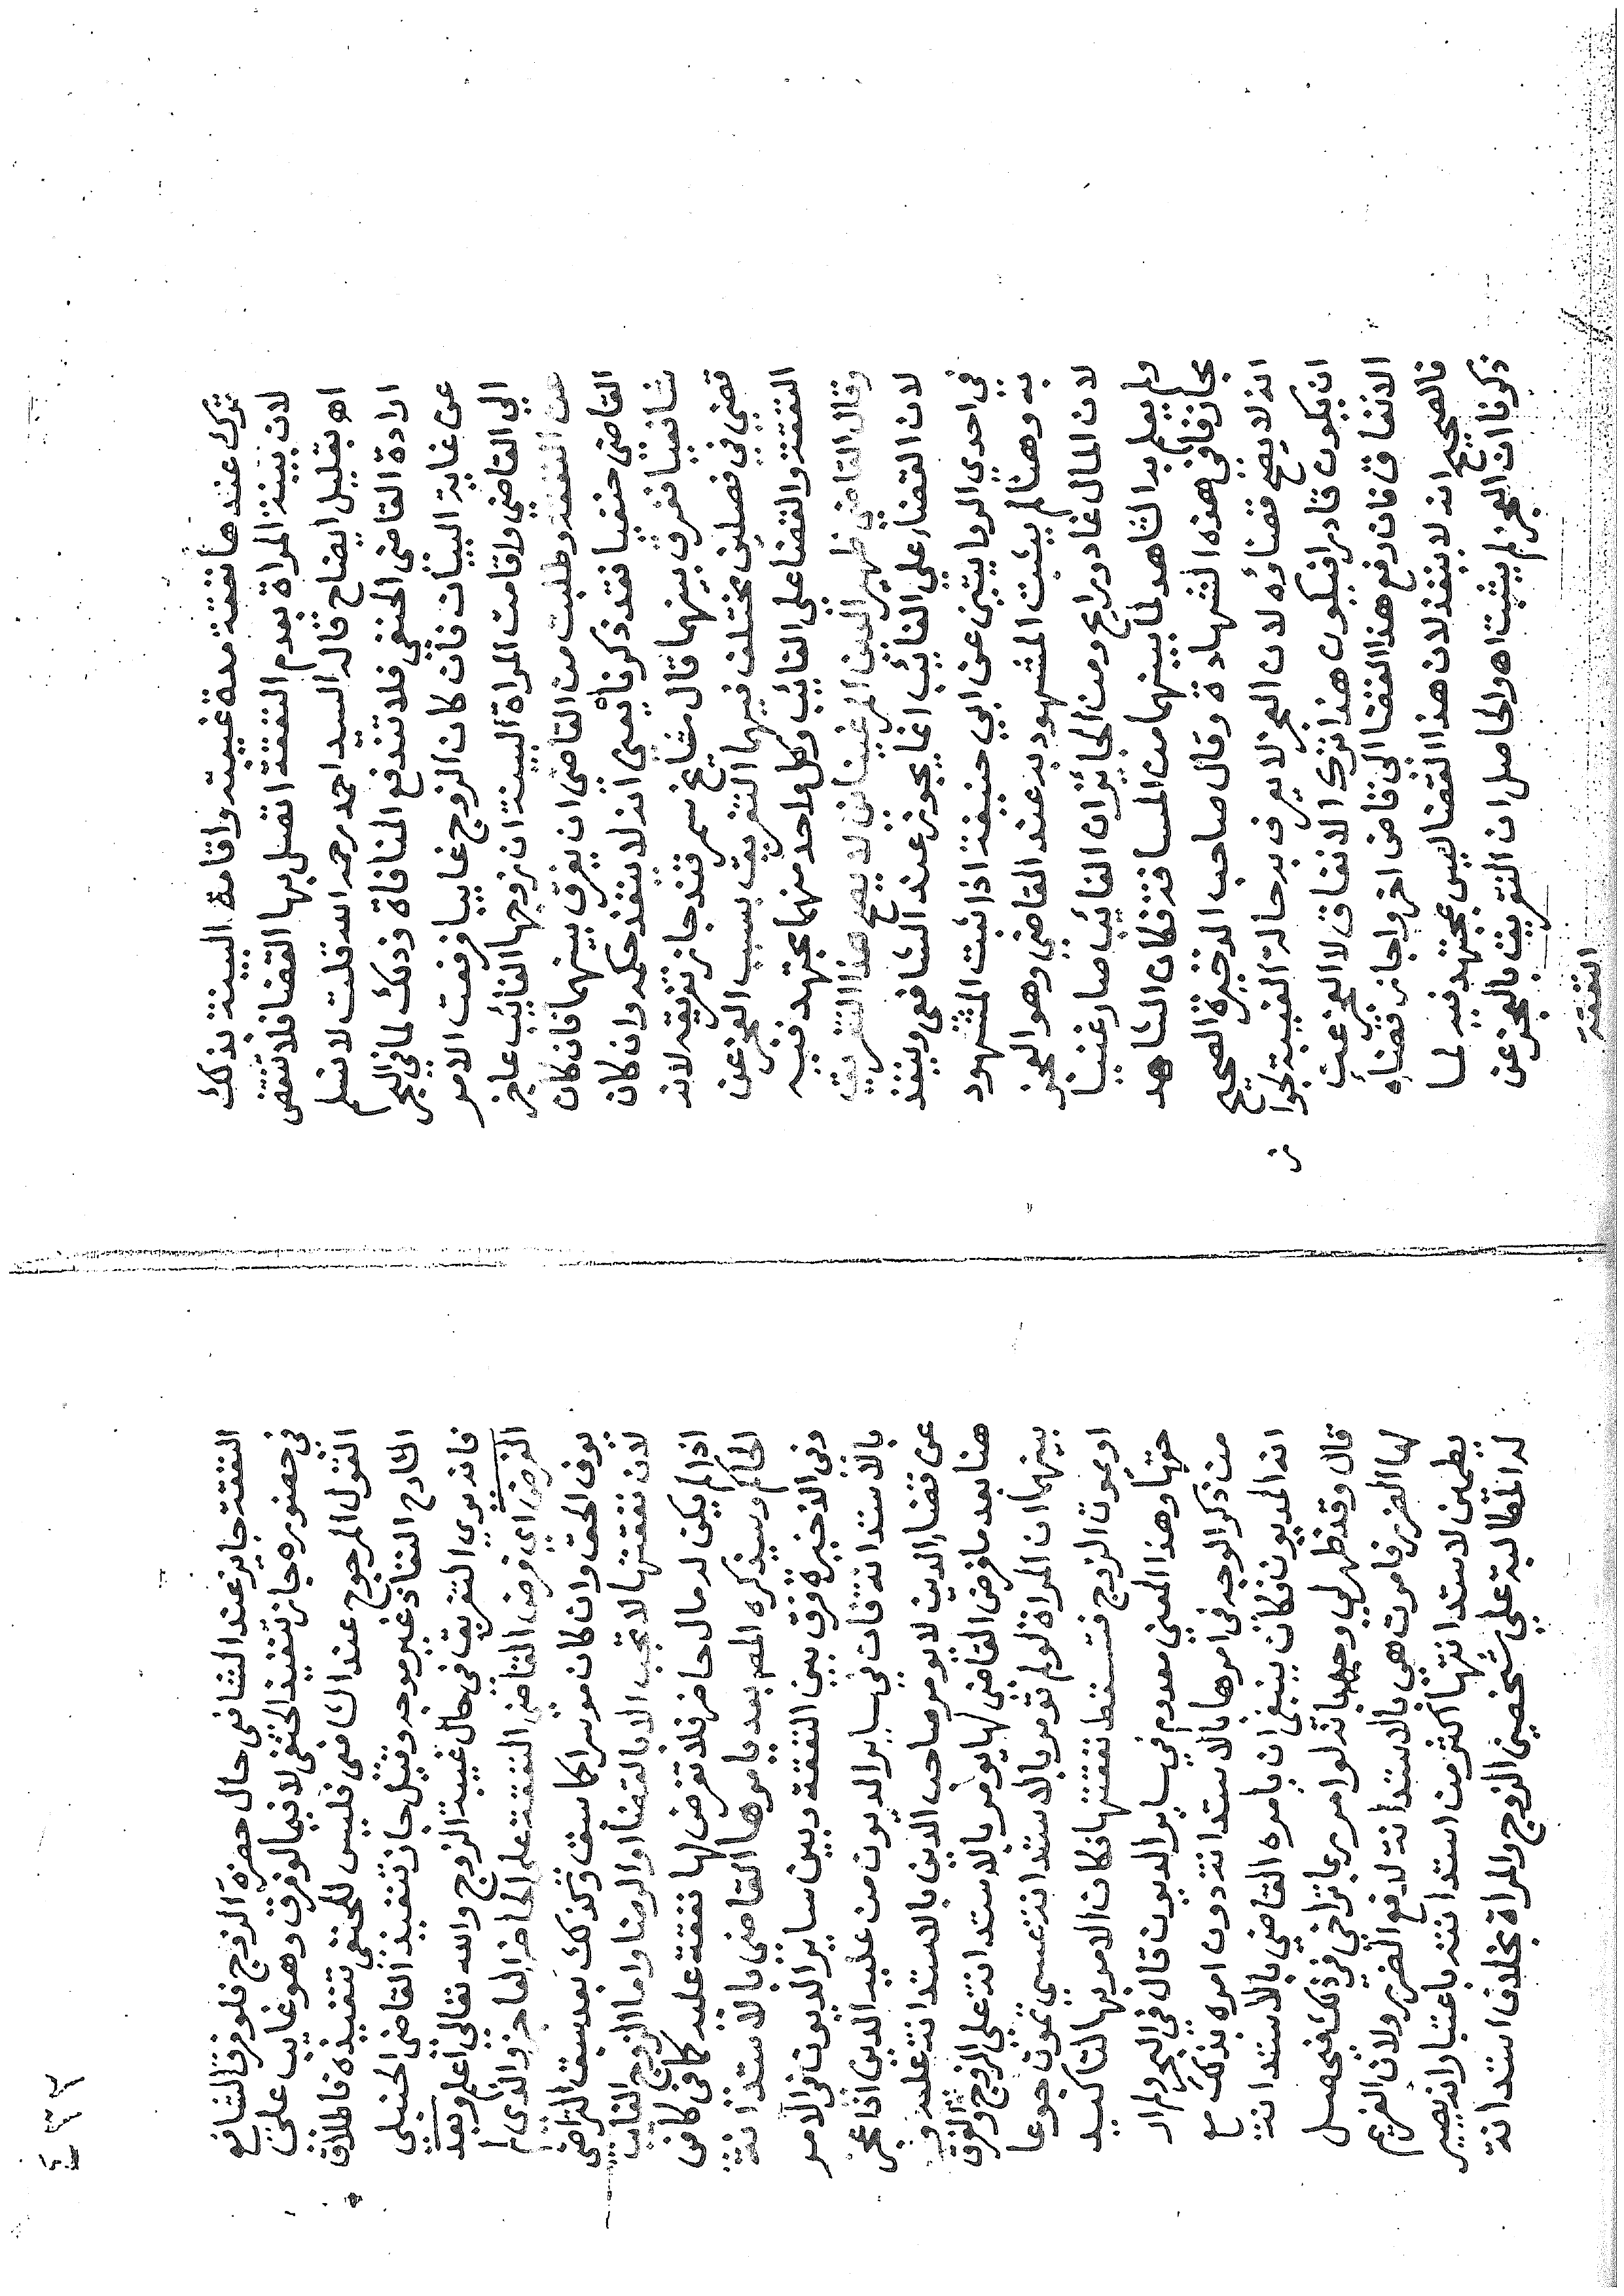 ترك عندها نفقة مدة غيبته واقامة البينة بذلك
لان بينة المراة بعدم النفقة اتصل بها القضا فلا تنقض
اه بقليل ايضاح قال السيد احمد رحمه الله قلت لا نسلم
ارادة القاضى الحنفى فلا تندفع المنافاة وذلك لما في البحر
عن غاية البيان فان كان الزوج غايبا فرفعت الامر
الي القاضي واقامت المراة البينة ان زوجها الغائب عاجز
عن النفقة وطلبت من القاضى ان يفرق بينهما فان كان
القاضى حنفيا فقد ذكرنا يعنى انه لا ينفذ حكمه وان كان
شافعيا ففرق بينهما قال مشايخ سمرقند جاز تفريقه لانه
قضي في فصلين مختلف فيهما التفريق بسبب العجز عن
النفقة والقضا على الغائب وكل واحد منهما مجتهد فيه
وقال القاضي ظهير الدين المرغيناني لا يصح هذا التفريق
لان القضاء علي الغائب انما يجوز عند الشافعى وينفذ
في احدي الروايتين عن ابي حنيفة اذا ثبت المشهود
به وهنا لم يثبت المشهود به عند القاضي وهو العجز
لان المال غاد ورايح ومن الجائز ان الغائب صار غنيا
ولم يعلم به الشاهد لما بينهما من المسافة فكان الشاهد
مجازفا في هذه الشهادة وقال صاحب الذخيرة الصحيح
انه لا يصح قضاؤه لان العجز لا يعرف به حالة الغيبة لجوا
ز
ان يكون قادرا فيكون هذا ترك الانفاق لا العجز عن
الانفاق فان رفع هذا القضا الى قاض اخر واجاز قضاه
فالصحيح انه لا ينفذ لان هذا القضا ليس بمجتهد فيه لما
ذكرنا ان العجز لم يثبت اه والحاصل ان التفريق بالعجز عن
النفقة
٤٣٢
النفقة جايز عند الشافعى حال حضرة الزوج فلو فرق الشافع
في حضوره جاز تنفيذ الحنفى لا فيما لو فرق وهو غايب علي
القول المرجوح عند الشافعى فليس للحنفى تنفيذه فاطلاق
الشارح النفاذ غير موجه وقيل جاز تنفيذ القاضى الحنبلي
فانه يري التفريق في حال غيبة الزوج والله تعالى اعلم وبعد
الفرض اي فرض القاضى النفقة على الحاضر العاجز والذي لم
يوف الحق وان كان موسرا كما سبق وكذلك بعد سبق التراضى
لان نفقتها لا تجب الا بالقضا او الرضا واما الزوج الغايب
اذا لم يكن له مال حاضر فلا تفرض لها نفقة عليه كما فى كافى
الحاكم وسيذكره المص بعد يامرها القاضى بالاستدانة
وفى الذخيرة فرق بين النفقة وبين ساير الديون فى الامر
بالاستدانة فان في ساير الديون من عليه الدين اذا عجز
عن قضاء الدين لا يومر صاحب الدين بالاستدانة عليه و
هنا بعد ما فرض القاضى لها يومر بالاستدانة على الزوج والفرق
بينهما ان المراة لو لم تومر بالاستدانة عسي تموت جوعا
او يموت الزوج فتسقط نفقتها فكان الامر بها لتاكيد
حقها وهذا المعني معدوم في ساير الديون قال في البحر ولم ار
من ذكر الوجه فى امرها بالاستدانة دون امره بذلك مع
انه المديون فكان ينبغى ان يامره القاضي بالاستدانة
قال وقد ظهر لي وجهه انه لو امر ربما تراخي في ذلك فيحصل
لها الضرر فامرت هى بالاستدانة لدفع الضرر ولان الغريم
يطمئن لاستدانتها اكثر من استدانته باعتبار انه يصير
له المطالبة علي شخصين الزوج والمراة بخلاف استدانته